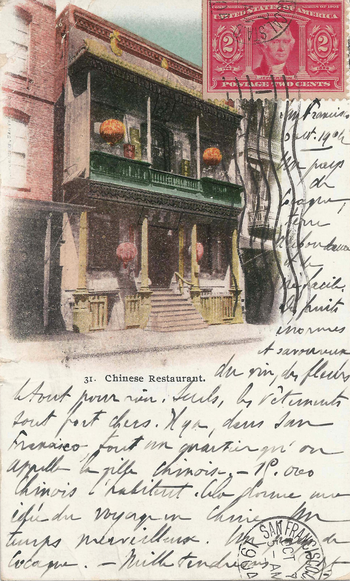 UNITED STATES OF AMERICA
2 2
POSTAGE TWO CENTS
San Francisco
Oct. 1904
Un pays
de
Cocagne,
terre
de
facile,
de fruits
énormes
et savoureux
31. Chinese Restaurant.
du vin, des fleurs
à tout pour rien. Seuls, les vêtements
sont fort chers. Il y a, dans San
Francisco tout un quartier qu'on
appelle la ville chinoise. —
chinois l'habitent. Cela donne une
idée du voyage en Chine. Un
temps merveilleux. Un pays de
Cocagne. — Mille tendresses
SAN FRANCISCO
OCT
5 - AM
1904